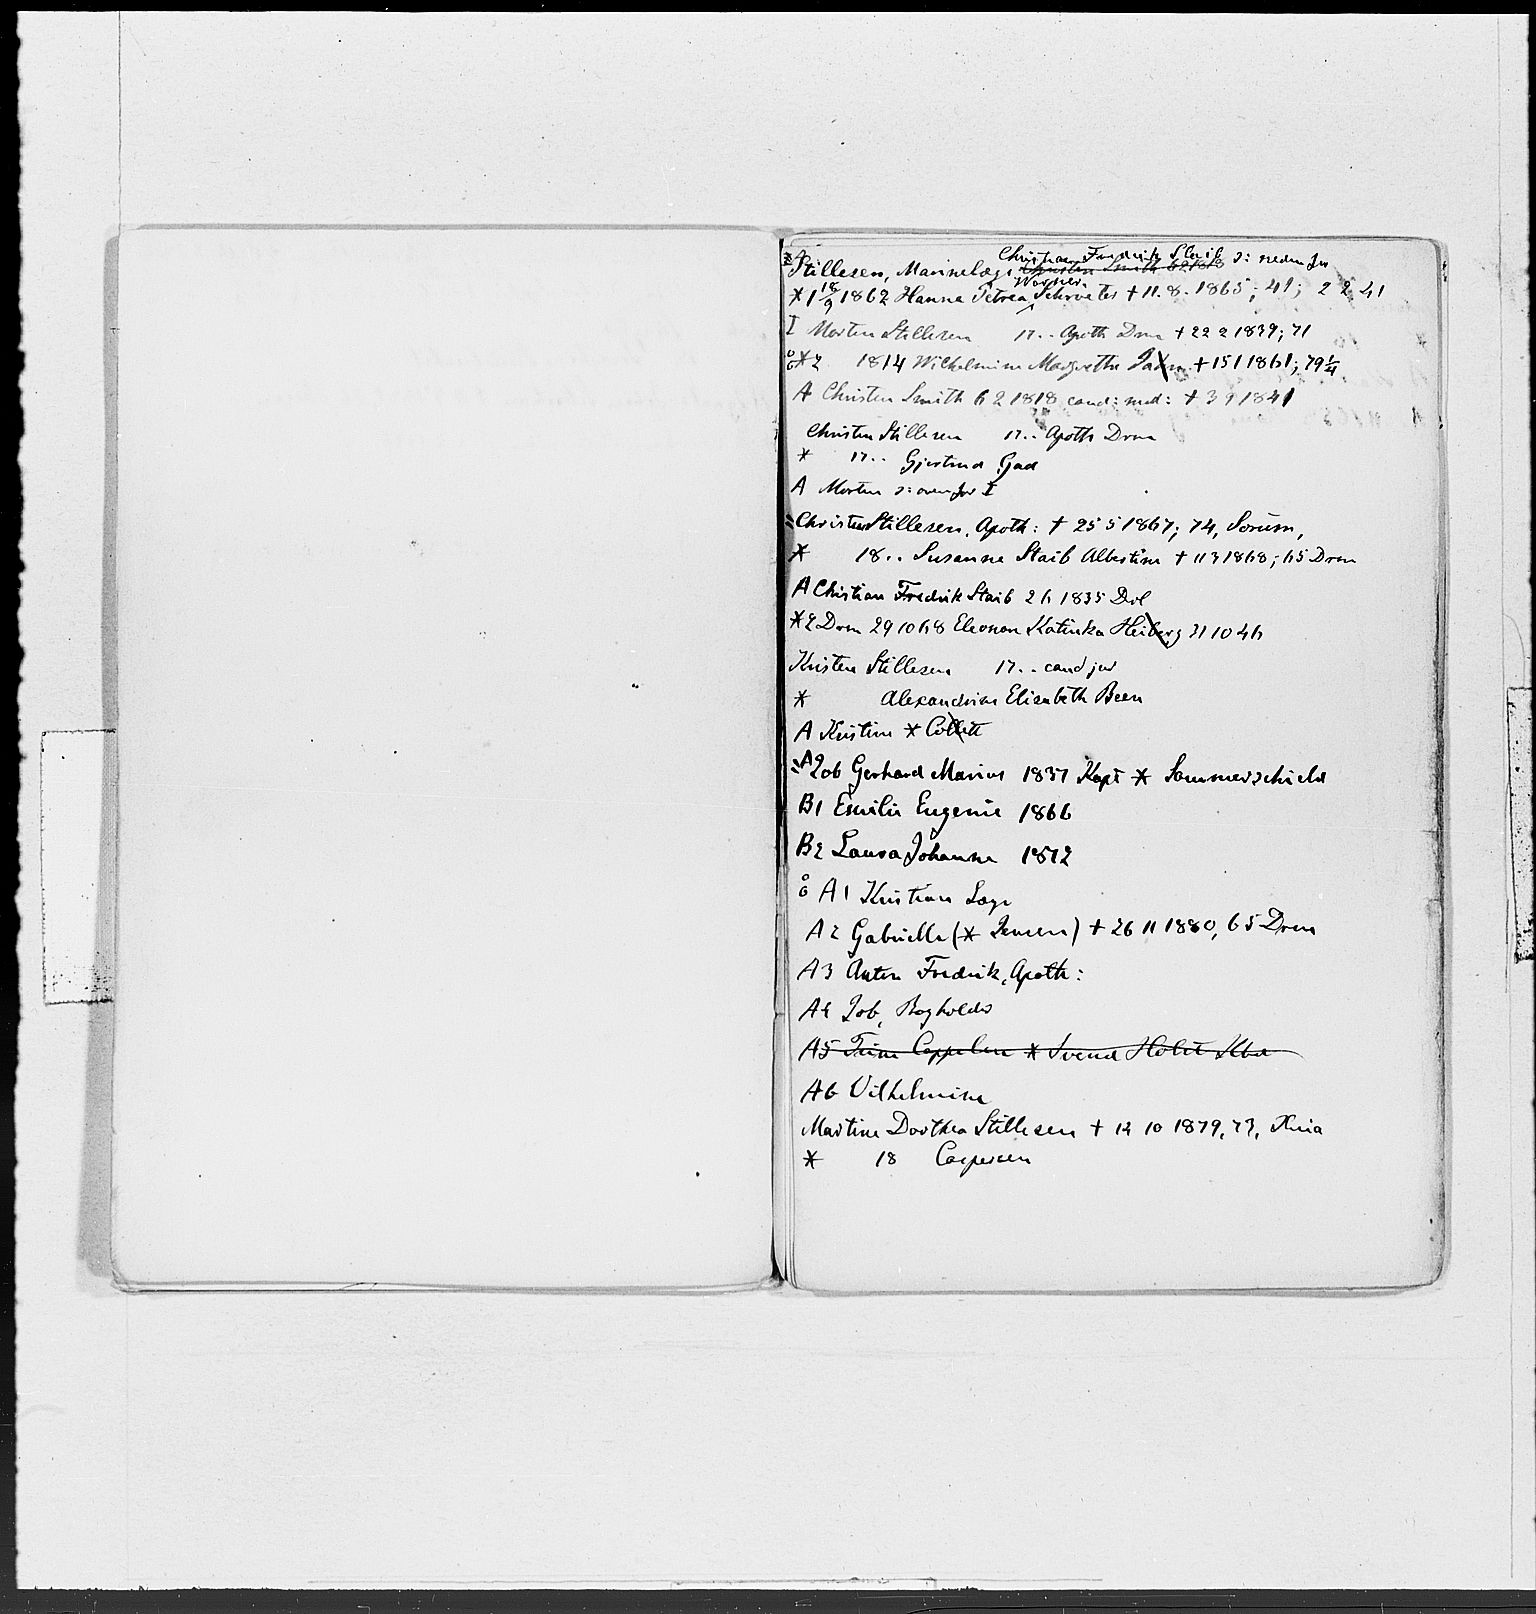 Christian Fredrik Staib ɔ: nedenfor
Stillesen, Marinelæge Christen Smith 6 2 1818
Wörner
* 1 18/9 1862 Hanne Petrea Schrøeter + 11.8.1865; 41; 2 2 41
I Morten Stillesen 17.. Apoth Drm + 22 2 1839; 71
* 2 1814 Wilhelmine Margrethe + 15 1 1861; 79 1/4
A Christen Smith 6 2 1818 cand: med: + 3 9 1841
Christen Stillesen 17.. Apoth Drm
* 17.. Gjertrud Gad
A Morten ɔ: ovenfor I
= Christen Stillesen, Apoth: + 25 5 1867; 74, Sørum,
* 18.. Susanne Staib Albertine + 11 3 1868; 65 Drm
A Christian Fredrik Staib 2 6 1835 Dol
* 2 Drm 29 10 68 Eleonora Katinka Heiberg 31 10 46
Kristen Stillesen 17.. cand jur
* Alexandrine Elisabeth Been
A Kristine * Collett
= A2 Job Gerhard Marius 1837 Kapt * Sommerschield
B1 Emilie Eugenie 1866
B2 Laura Johanne 1872
A1 Kristian Læge
A2 Gabrielle (* Jensen) + 26 11 1880, 65 Drm
A3 Anton Fredrik, Apoth:
A4 Job, Bogholder
A5 Trine Cappelen * Svend Holst
A6 Vilhelmine
Martine Dorthea Stillesen + 12 10 1879, 73, Xnia
* 18 Caspersen